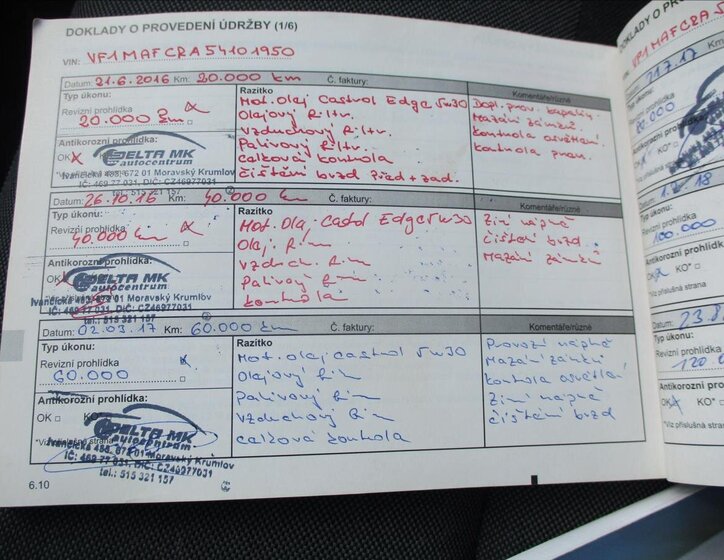 DOKLADY O PROVEDENÍ ÚDRŽBY (1/6)
VIN: VF1MAFCRA54101950
Datum: 21.6.2016 Km: 20.000 km Č. faktury:
Typ úkonu:
Revizní prohlídka
20.000 km
Antikorozní prohlídka:
OK
DELTA MK
autocentrum
Ivančická 498, 672 01 Moravský Krumlov
IČ: 469 77 031, DIČ: CZ46977031
tel.: 515 321 157
Razítko
Mot. Olej Castrol Edge 5w30
Olejový filtr.
Vzduchový filtr.
Palivový filtr.
Celková kontrola
Čištění brzd před + zad.
Komentáře/různé
Dopl. prov. kapaliny.
Mazání zámků.
Kontrola osvětlení.
Kontrola pneu.
Datum: 26.10.16 Km: 40.000 km Č. faktury:
Typ úkonu:
Revizní prohlídka
40.000 km
Antikorozní prohlídka:
OK
DELTA MK
autocentrum
Ivančická 498, 672 01 Moravský Krumlov
IČ: 469 77 031, DIČ: CZ46977031
tel.: 515 321 157
Razítko
Mot. Olej Castol Edge 5w30
Olej.
Vzduch.
Palivový
Kontrola
Komentáře/různé
Zimní náplně
Čištění brzd.
Mazání zámků
Datum: 02.03.17 Km: 60.000 km Č. faktury:
Typ úkonu:
Revizní prohlídka
60.000
Antikorozní prohlídka:
OK KO*
*Viz příslušná strana
DELTA MK
autocentrum
Ivančická 498, 672 01 Moravský Krumlov
IČ: 469 77 031, DIČ: CZ46977031
tel.: 515 321 157
Razítko
Mot. olej Castrol 5w30
Olejový
Palivový
Vzduchový
Celková kontrola
Komentáře/různé
Provozní náplně
Mazání zámků
Kontrola osvětlení
Zimní náplně
Čištění brzd
6.10
DOKLADY O PR
VIN: VF1MAFCRA5
21.7.17
Revizní prohlídka
Antikorozní prohlídka:
KO*
*Viz příslušná strana
Typ úkonu:
Revizní prohlídka
100.000
Antikorozní prohlídka:
OK KO*
*Viz příslušná strana
Datum: 23.8
Typ úkonu:
Revizní prohlídka
120.0
Antikorozní prohlídka:
OK KO*
*Viz příslušná strana